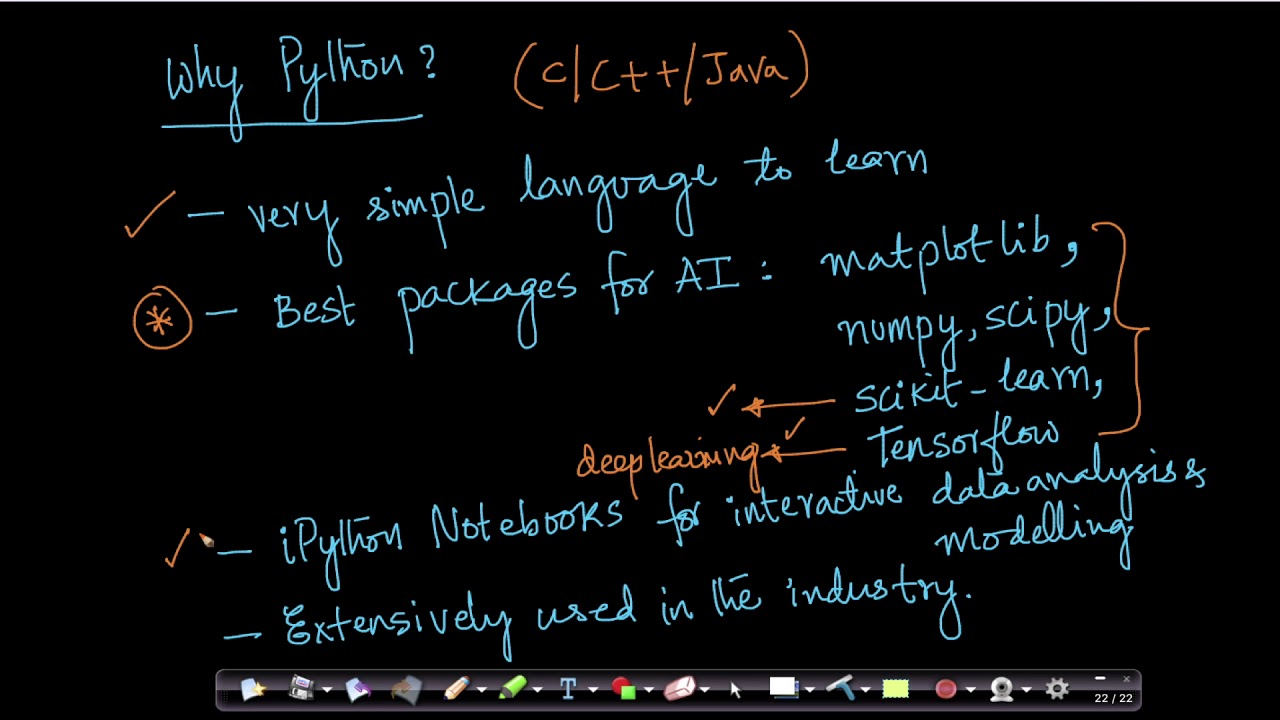 Why Python? (C/C++/Java)
- very simple language to learn
* - Best packages for AI : matplotlib,
numpy, scipy,
scikit-learn,
deep learning Tensorflow
- iPython Notebooks for interactive data analysis &
modelling
- Extensively used in the industry.
T
22 / 22